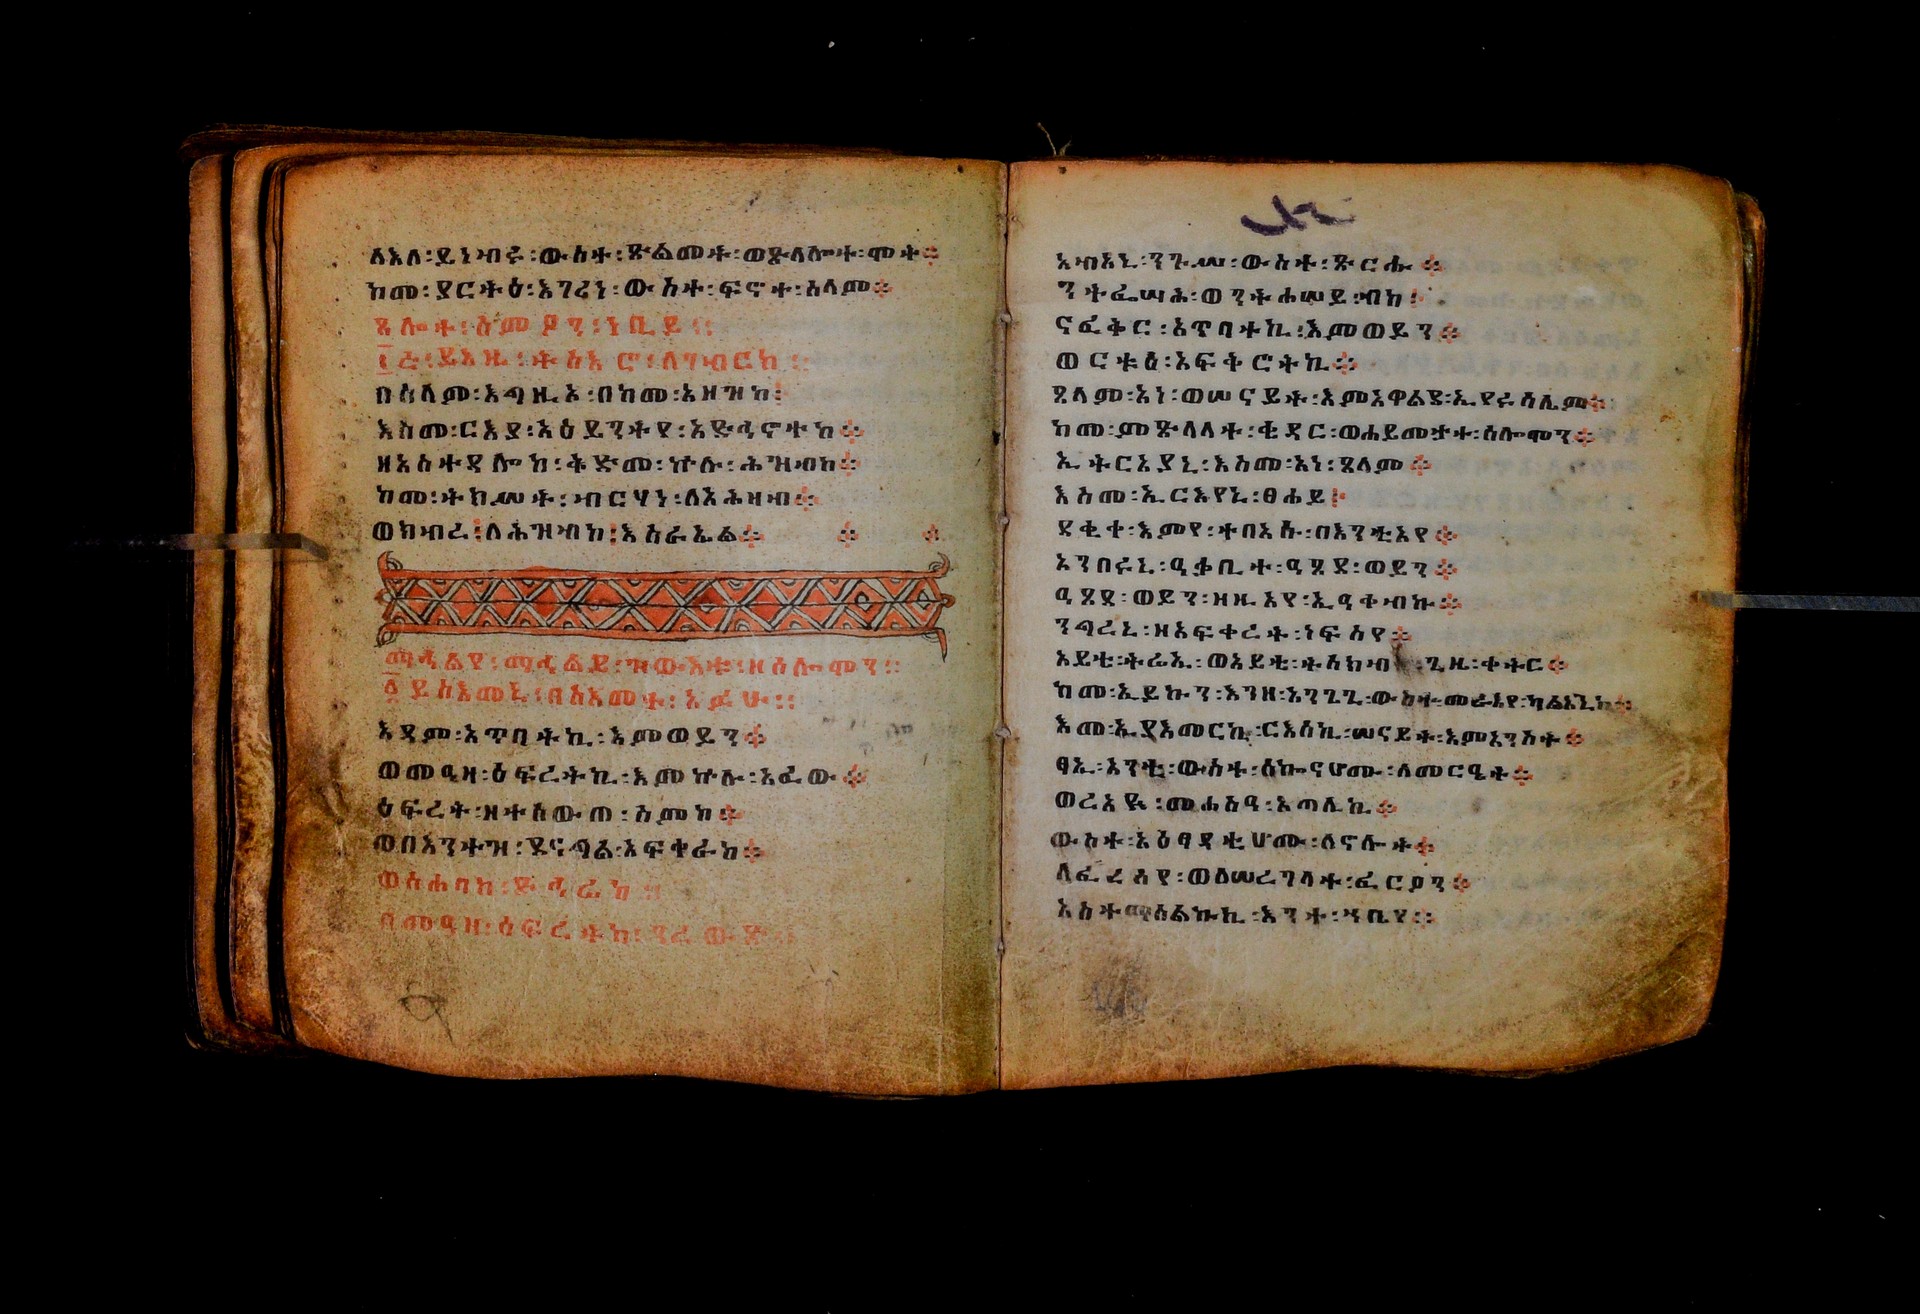 ለእለ፡ይነብሩ፡ውስተ፡ጽልመት፡ወጽላሎተ፡ሞት።
ከመ፡ያርትዕ፡እገሪነ፡ውስተ፡ፍኖተ፡ሰላም።
ጸሎተ፡ስምዖን፡ነቢይ።
ይእዜ፡ትስእሮ፡ለገብርከ።
በሰላም፡እግዚኦ፡በከመ፡አዘዝከ፡
እስመ፡ርእያ፡አዕይንትየ፡አድኅኖተከ።
ዘአስተዳሎከ፡ቅድመ፡ኵሉ፡ሕዝብከ።
ከመ፡ትክሥት፡ብርሃነ፡ለአሕዛብ።
ወክብረ፡ለሕዝብከ፡እስራኤል።
ማኅልየ፡ማኅልይ፡ዝውእቱ፡ዘሰሎሞን።
ይስእመኒ፡በአእመተ፡አፉሁ።
አዳም፡አጥባትኪ፡እምወይን።
ወመዓዛ፡ዕፍረትኪ፡እምኵሉ፡አፈው።
ዕፍረት፡ዘተሰውጠ፡ስምከ።
ወበእንተዝ፡ደናግል፡አፍቀራከ።
ወሰሐባከ፡ድኅሬከ።
በመዓዛ፡ዕፍረትከ፡ንረውጽ።
አብአኒ፡ንጉሥ፡ውስተ፡ጽርሑ።
ንትፌሣሕ፡ወንትሐሠይ፡ብከ፡
ናፈቅር፡አጥባትኪ፡እምወይን።
ወርቱዕ፡አፍቅሮትኪ።
ጸላም፡አነ፡ወሠናይት፡እምአዋልደ፡ኢየሩሳሌም።
ከመ፡ምጽላላት፡ቄዳር፡ወሐይመታተ፡ሰሎሞን።
ኢትርአያኒ፡እስመ፡አነ፡ጸላም።
እስመ፡ኢርእየኒ፡ፀሐይ፡
ደቂቀ፡እምየ፡ተበአሱ፡በእንቲአየ።
አንበሩኒ፡ዓቃቢተ፡ዓጸደ፡ወይን።
ዓጸደ፡ወይን፡ዘዚአየ፡ኢዓቀብኩ።
ንግረኒ፡ዘአፍቀረት፡ነፍስየ።
አይቴ፡ትሬኢ፡ወአይቴ፡ትሰክብ፡ጊዜ፡ቀትር።
ከመ፡ኢይኩን፡እንዘ፡እንጌጊ፡ውስተ፡መራእየ፡ካልአኒከ።
እመ፡ኢያእመርኪ፡ርእሰኪ፡ሠናይት፡እምአንስት።
ፃኢ፡አንቲ፡ውስተ፡ሰኰናሆሙ፡ለመርዔት።
ወረአዪ፡መሐስዓ፡አጣሊኪ።
ውስተ፡አዕፃዳቲሆሙ፡ለኖሎት።
ለፈረስየ፡ወለሠረገላት፡ፈርዖን።
አስተማሰልኩኪ፡እንተ፡ኀቤየ።